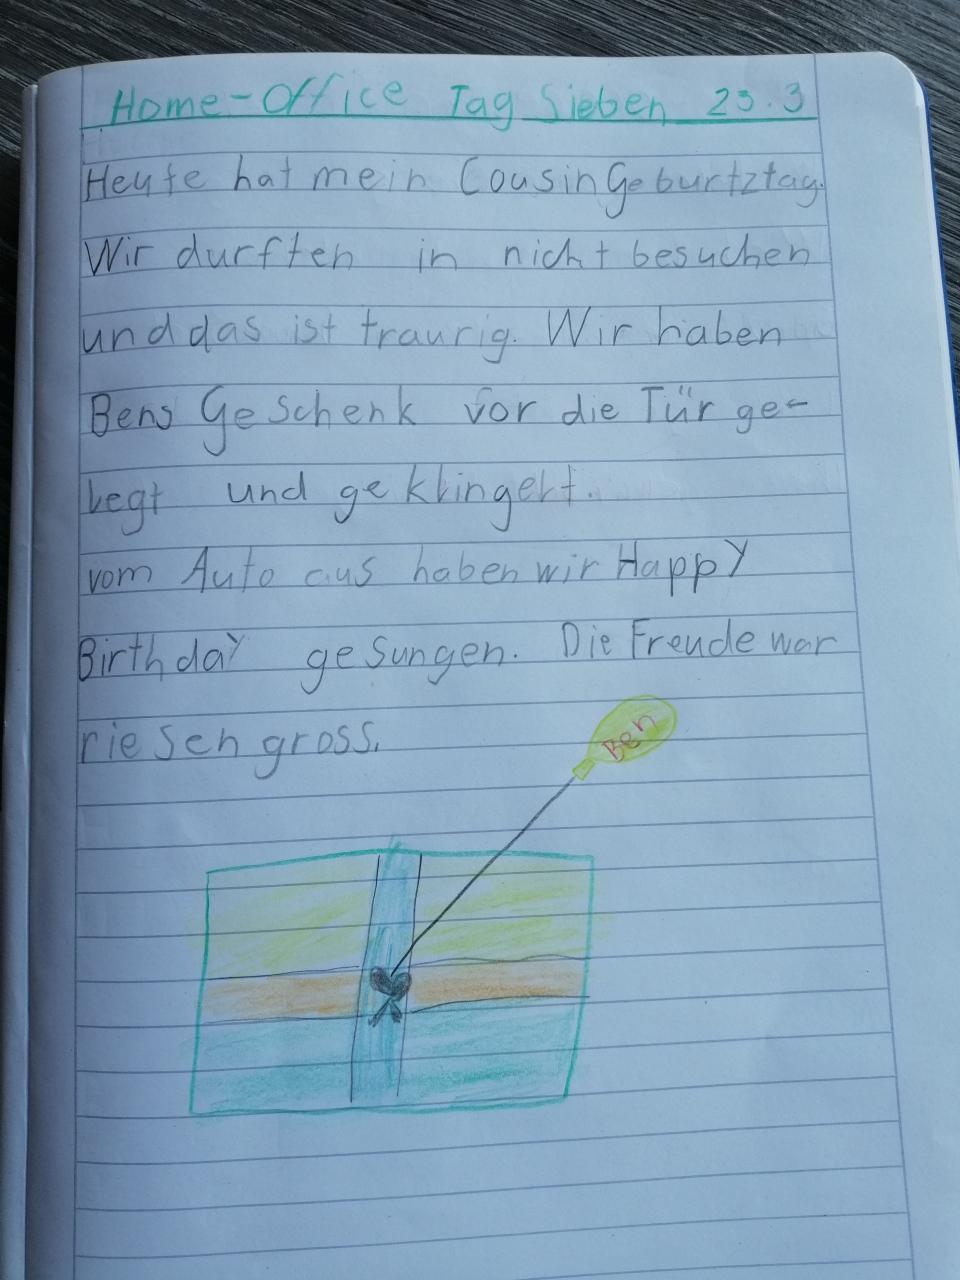 Home-Office Tag Sieben 23.3
Heute hat mein Cousin Geburtztag.
Wir durften in nicht besuchen
und das ist traurig. Wir haben
Bens Geschenk vor die Tür ge-
legt und geklingelt.
vom Auto aus haben wir Happy
Birthday gesungen. Die Freude war
riesengross.
Ben